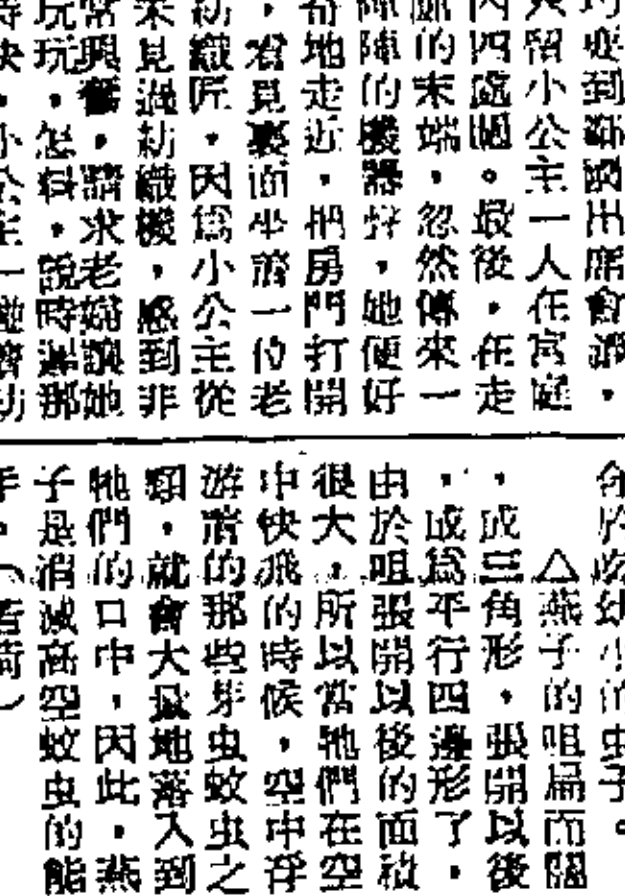 到鄰國出席會議，
留小公主一人在宮庭
內四處闖。最後，在走
廊的末端，忽然傳來一
陣陣的機器聲，她便好
奇地走近，把房門打開
，看見裏面坐着一位老
紡織匠，因爲小公主從
未見過紡織機，感到非
常興奮，請求老婦讓她
玩玩，怎料，說時遲那
時快，小公主一碰着紡
於吃幼小的虫子。
△燕子的咀扁而闊
，成三角形，張開以後
，成爲平行四邊形了，
由於咀張開以後的面積
很大，所以當牠們在空
中快飛的時候，空中浮
游着的那些芽虫蚊虫之
類，就會大量地落入到
牠們的口中，因此，燕
子是消滅高空蚊虫的能
手。（若荷）